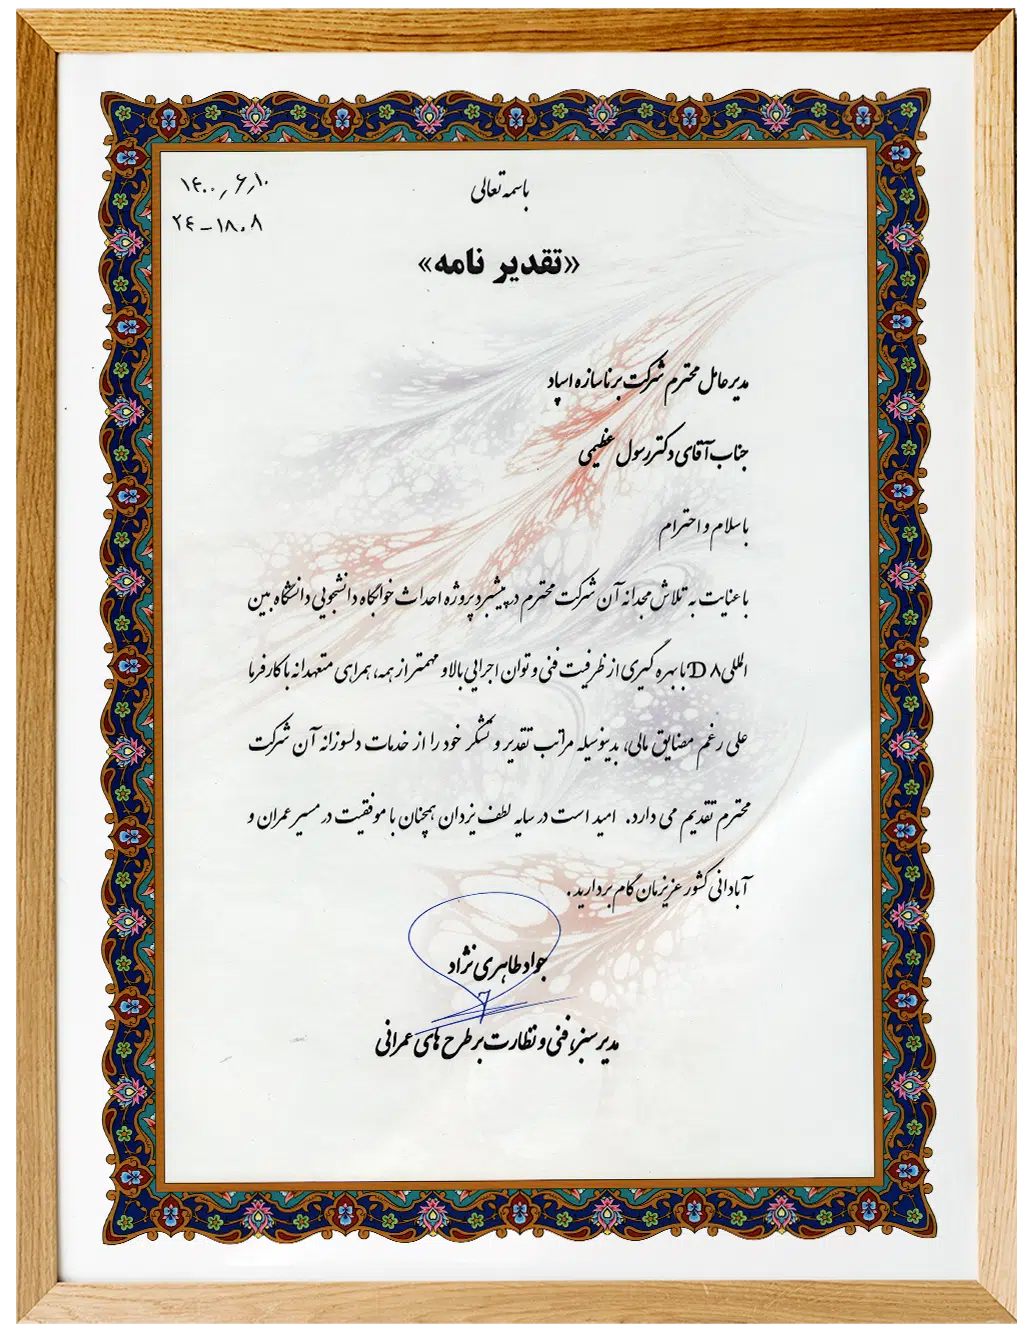 ۱۴۰۰٫۶٫۱۰
۲۴-۱۸۰۸
باسمه تعالی
«تقدیر نامه»
مدیر عامل محترم شرکت برنا سازه اسپاد
جناب آقای دکتر رسول عظیمی
با سلام و احترام
با عنایت به تلاش مجدانه آن شرکت محترم در پیشبرد پروژه احداث خوابگاه دانشجویی دانشگاه بین
المللی D ۸ با بهره گیری از ظرفیت فنی و توان اجرایی بالا و مهمتر از همه، همراهی متعهدانه با کارفرما
علی رغم مضایق مالی، بدینوسیله مراتب تقدیر و تشکر خود را از خدمات دلسوزانه آن شرکت
محترم تقدیم می دارد. امید است در سایه لطف یزدان همچنان با موفقیت در مسیر عمران و
آبادانی کشور عزیزمان گام بردارید.
جواد طاهری نژاد
مدیر سبز، فنی و نظارت بر طرح های عمرانی